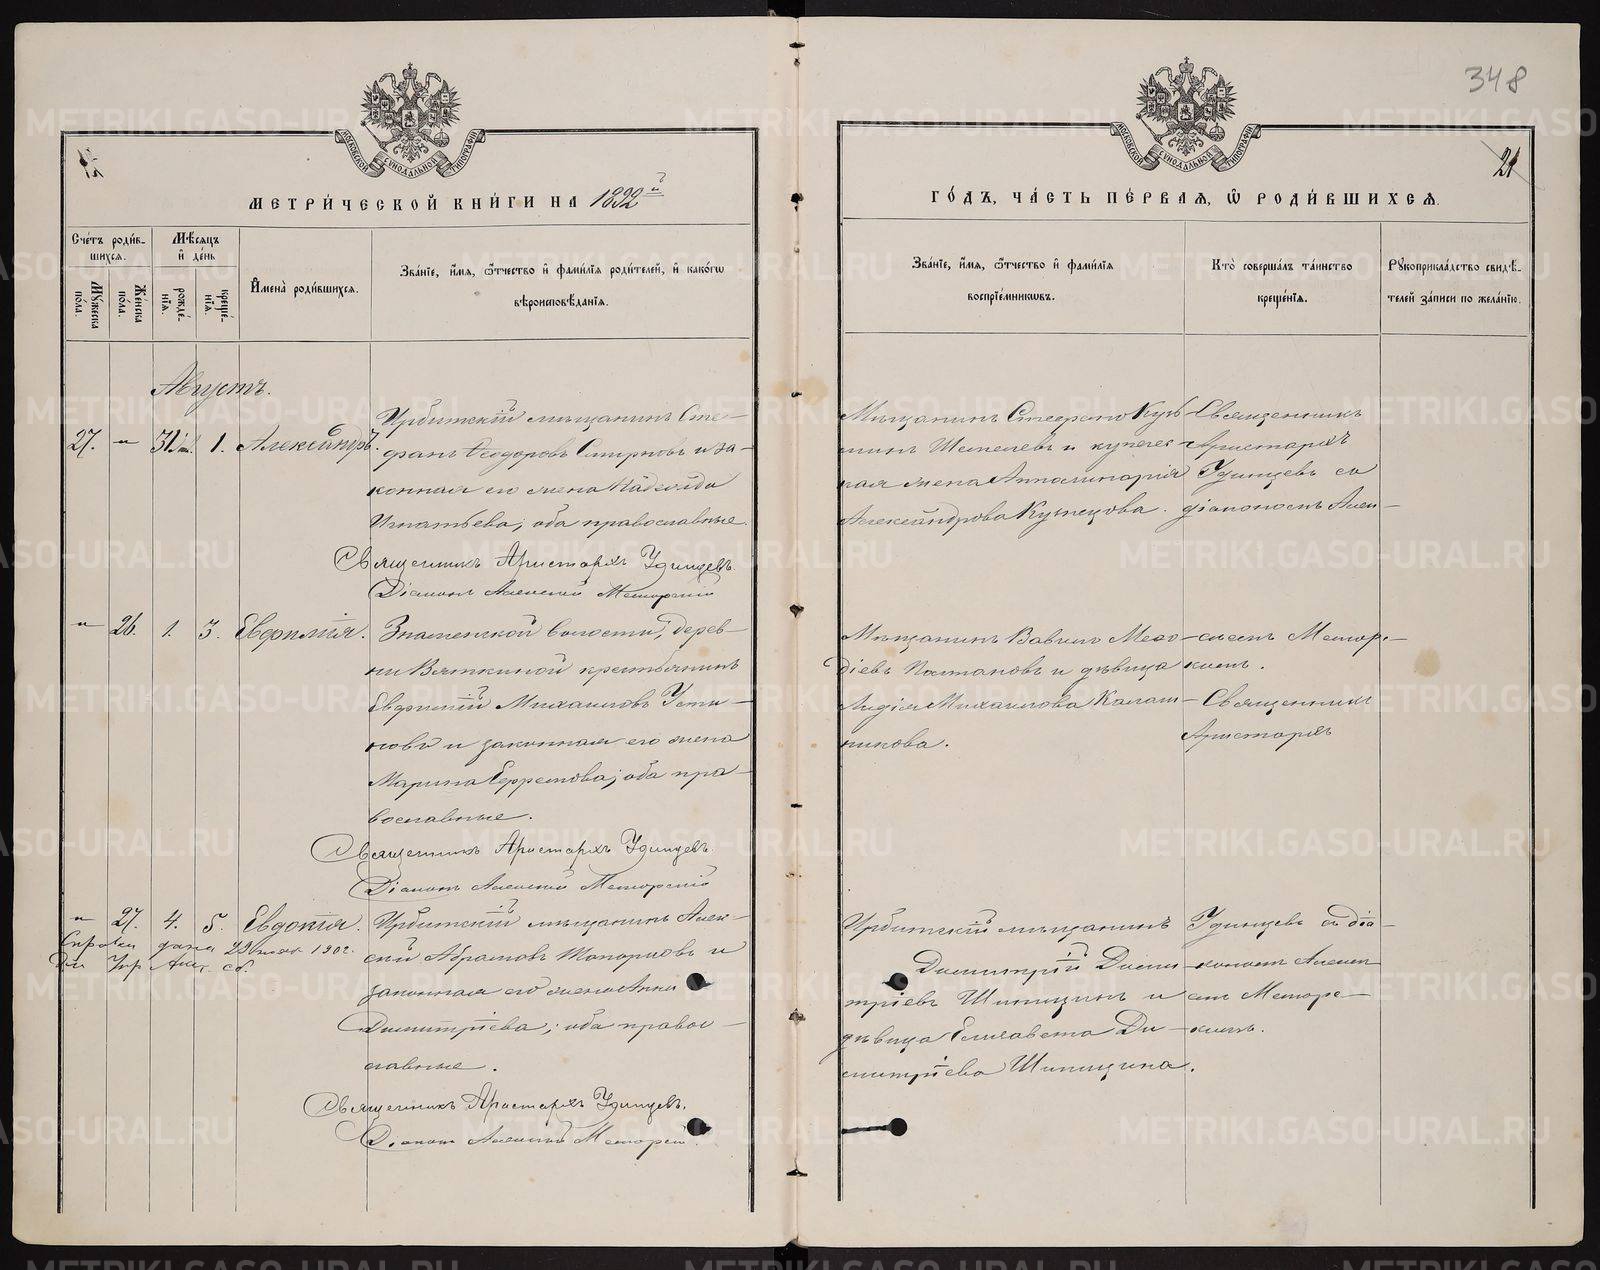 348
21
МОСКОВСКОЙ СѴНОДАЛЬНОЙ ТИПОГРАФІИ
МОСКОВСКОЙ СѴНОДАЛЬНОЙ ТИПОГРАФІИ
МЕТРИ́ЧЕСКОЙ КНИ́ГИ НА 1892й
ГО́ДЪ, ЧА́СТЬ ПЕ́РВАЯ, Ѡ РОДИ́ВШИХСЯ.
Сче́тъ роди́в-
шихся.
Мꙋ́жеска по́ла.
Же́нска по́ла.
Мѣ́сяцъ
и҆ де́нь
рожде́-
нїя.
креще́-
нїя.
И҆мена̀ роди́вшихся.
Зва́нїе, и҆́мя, ѻ҆́тчество и҆ фами́лїя роди́телей, и҆ како́гѡ
вѣроисповѣ́данїя.
Зва́нїе, и҆́мя, ѻ҆́тчество и҆ фами́лїя
воспрїе́мникѡвъ.
Кто̀ соверша́лъ та́инство
креще́нїя.
Рꙋкоприкла́дство свидѣ́-
телей за́писи по жела́нїю.
Августъ.
27. — 31 1. Александръ.
Ирбитскій мѣщанинъ Сте-
фанъ Ѳеодоровъ Смирновъ и за-
конная его жена Надежда
Игнатьева; оба православные.
Священникъ Аристархъ Удинцевъ.
Діаконъ Алексий Меморскій
Мѣщанинъ Стефанъ Кузь-
минъ Шепелевъ и купечес-
кая жена Апполинарія
Александрова Кузнецова.
Священникъ
Аристархъ
Удинцевъ со
діакономъ Алек-
" 26. 1. 3. Евфимія.
Знаменской волости, дерев-
ни Вяткиной крестьянинъ
Евфимій Михаиловъ Усти-
новъ и законная его жена
Марина Ефремова; оба пра-
вославные.
Священникъ Аристархъ Удинцевъ
Діаконъ Алексий Меморскій
Мѣщанинъ Вавилъ Меѳо-
діевъ Полтановъ и дѣвица
Лидія Михаилова Калаш-
никова.
сіемъ Меморс-
кимъ.
Священникъ
Аристархъ
" 27. 4. 5. Евдокія.
Справка дана 22 1902г.
Ирбитскій мѣщанинъ Алек-
сій Абрамовъ Топорковъ и
законная его жена Анна
Димитріева; оба право-
славные.
Священникъ Аристархъ Удинцевъ.
Діаконъ Алексий Меморскій
Ирбитскій мѣщанинъ
Димитрій Дими-
тріевъ Шипицинъ и
дѣвица Елисавета Ди-
митріева Шипицина.
Удинцевъ съ діа-
кономъ Алексі-
емъ Меморс-
кимъ.
METRIKI.GASO-URAL.RU